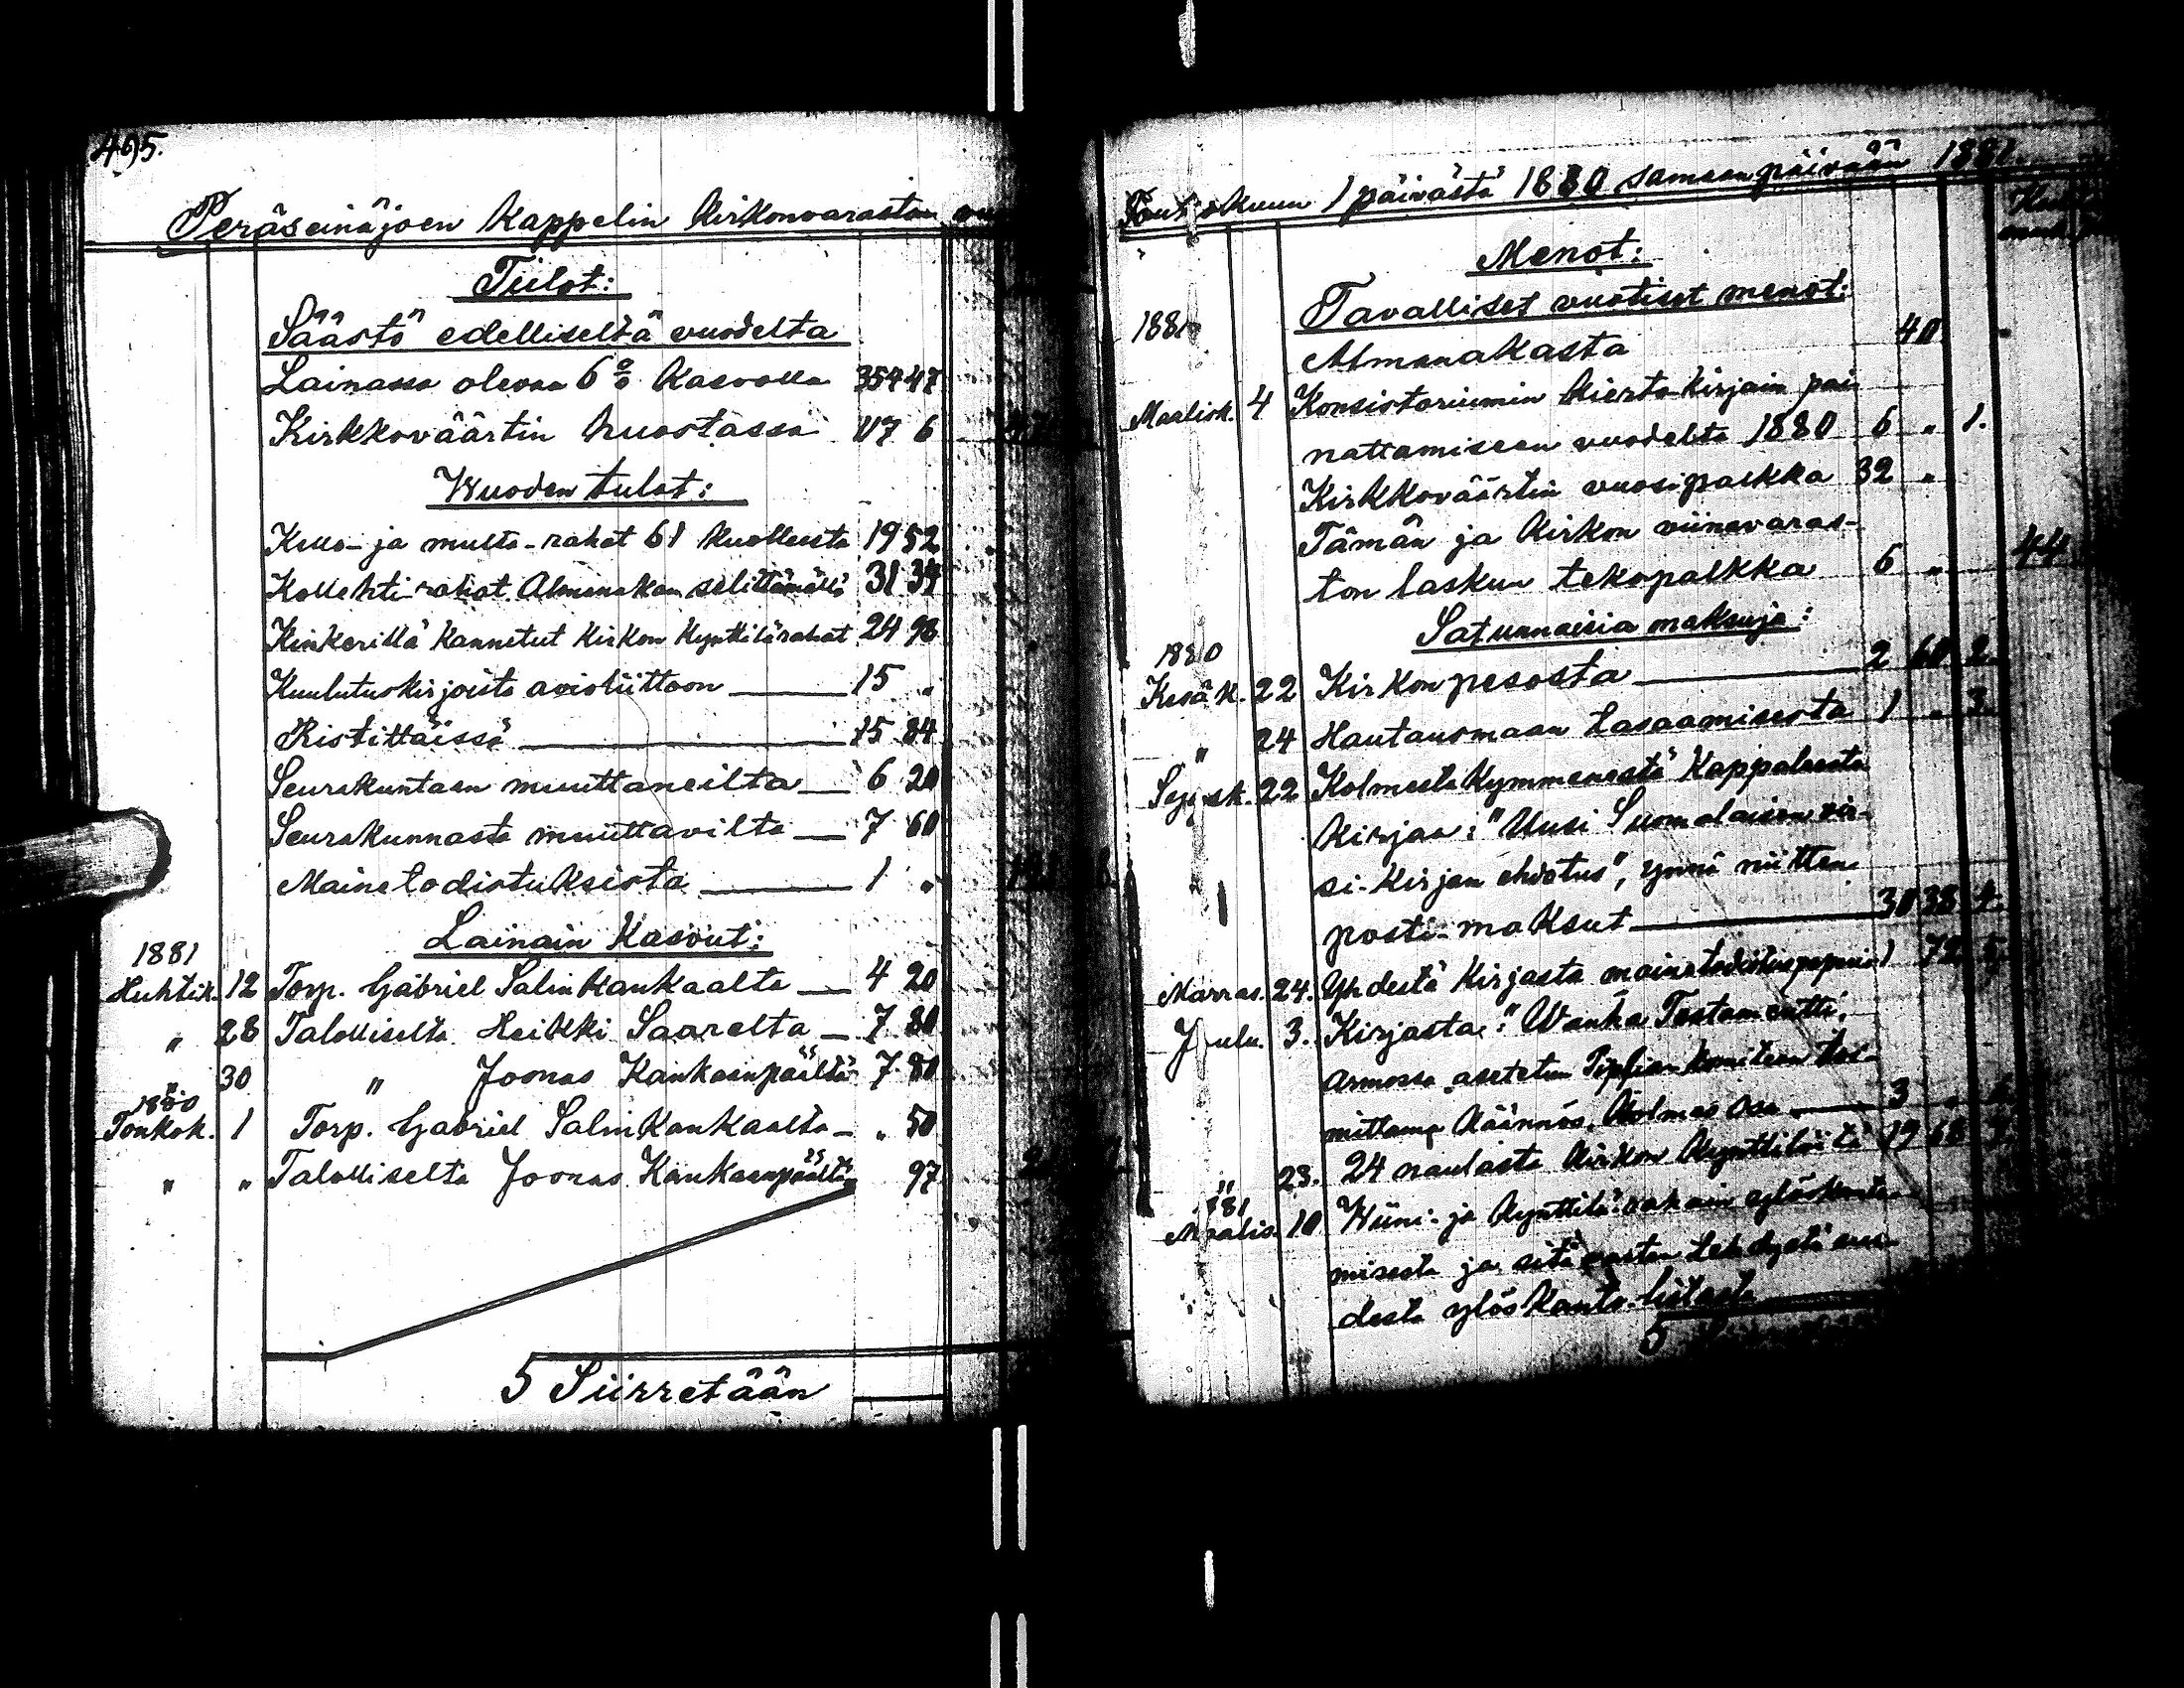 495.
Peräseinäjoen Kappelin Kirkonvaraston
Tulot:
Säästö edelliseltä vuodelta
Lainassa olevaa 6 % Kasvolla 354 47
Kirkkoväärtin huostassa 117 6
Wuoden tulot:
Kello- ja multa-rahat 61 Kuolleista 19 52
Kollehti-rahat Almanakan selittämällä 31 34
Kinkerillä Kannetut Kirkon Kynttilärahat 24 98
Kuulutuskirjoista avioliittoon 15 "
Ristittäissä 15 84
Seurakuntaan muuttaneilta 6 20
Seurakunnasta muuttavilta 7 60
Mainetodistuksista 1 "
Lainain Kasvut:
1881
Huhtik. 12 Torp. Gabriel Salinkankaalta 4 20
" 28 Talolliselta Heikki Saarelta 7 80
" 30 " Joonas Kankaanpäältä 7 80
1880
Toukok. 1 Torp. Gabriel Salinkankaalta " 50
" " Talolliselta Joonas Kankaanpäältä 97
5 Siirretään
Toukokuun 1 päivästä 1880 samaan päivään 1881.
Menot:
Tavalliset vuotiset menot:
1881
Almanakasta 40
Maalisk. 4 Konsistoriumin Kierto-Kirjain pai
nattamiseen vuodelta 1880 6 " 1.
Kirkkoväärtin vuosipalkka 32 "
Tämän ja Kirkon viinavaras-
ton laskun tekopalkka 6 " 44
Satunnaisia maksuja:
1880
Kesäk. 22 Kirkon pesosta 2 60 2.
" 24 Hautausmaan tasaamisesta 1 " 3.
Syysk. 22 Kolmesta Kymmenestä Kappaleesta
Kirjaa: "Uusi Suomalaisen vir-
si-Kirjan ehdotus", ynnä niitten
posti-maksut 30 38 4.
Marras. 24. Yhdestä Kirjasta mainetodistuspaperia 1 72 5.
Joulu. 3. Kirjasta: "Wanha Testamentti,
Armossa asetetun Piplian Komitean toi-
mittama Käännös, Kolmas Osa 3 " 6.
" 23. 24 naulasta Kirkon Kynttilöitä 19 68 7.
1881
Maalis. 10 Wiini- ja Kynttilä-rahain ylöskanta-
misesta ja sitä varten tehdystä uu-
desta ylöskanto-listasta
5